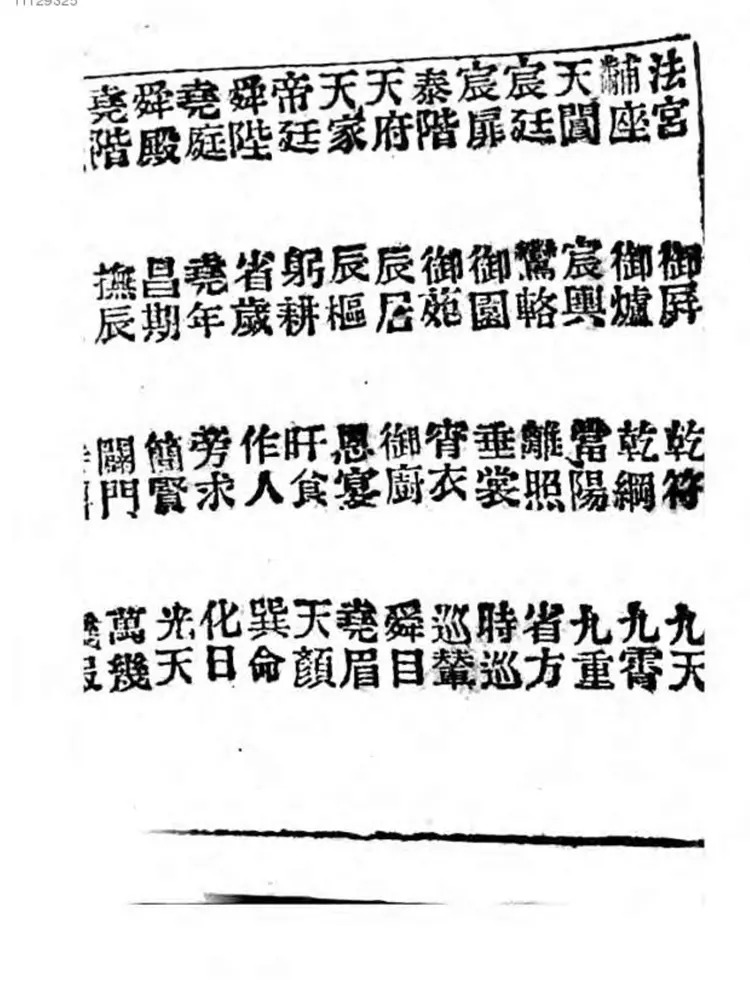 法宮 御屏 乾符 九天
黼座 御爐 乾綱 九霄
天閶 宸輿 當陽 九重
宸廷 鸞輅 離照 省方
宸扉 御園 垂裳 時巡
泰階 御苑 宵衣 巡輦
天府 辰居 御廚 舜目
天家 辰樞 恩宴 堯眉
帝廷 躬耕 旰食 天顏
舜陛 省歲 作人 巽命
堯庭 堯年 旁求 化日
舜殿 昌期 簡賢 光天
堯階 撫辰 闢門 萬幾